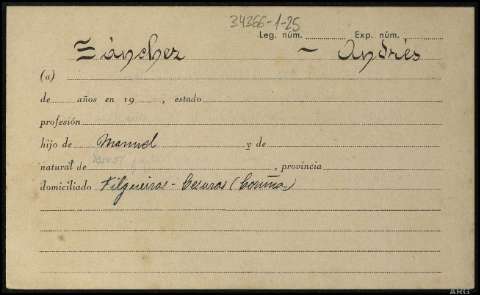 34266-1-25
Leg. núm. Exp. núm.
Sánchez — Andrés
(a)
de años en 19 , estado
profesión
hijo de Manuel y de
natural de , provincia
domiciliado Filgueiras - Cesuras (Coruña)
ARG